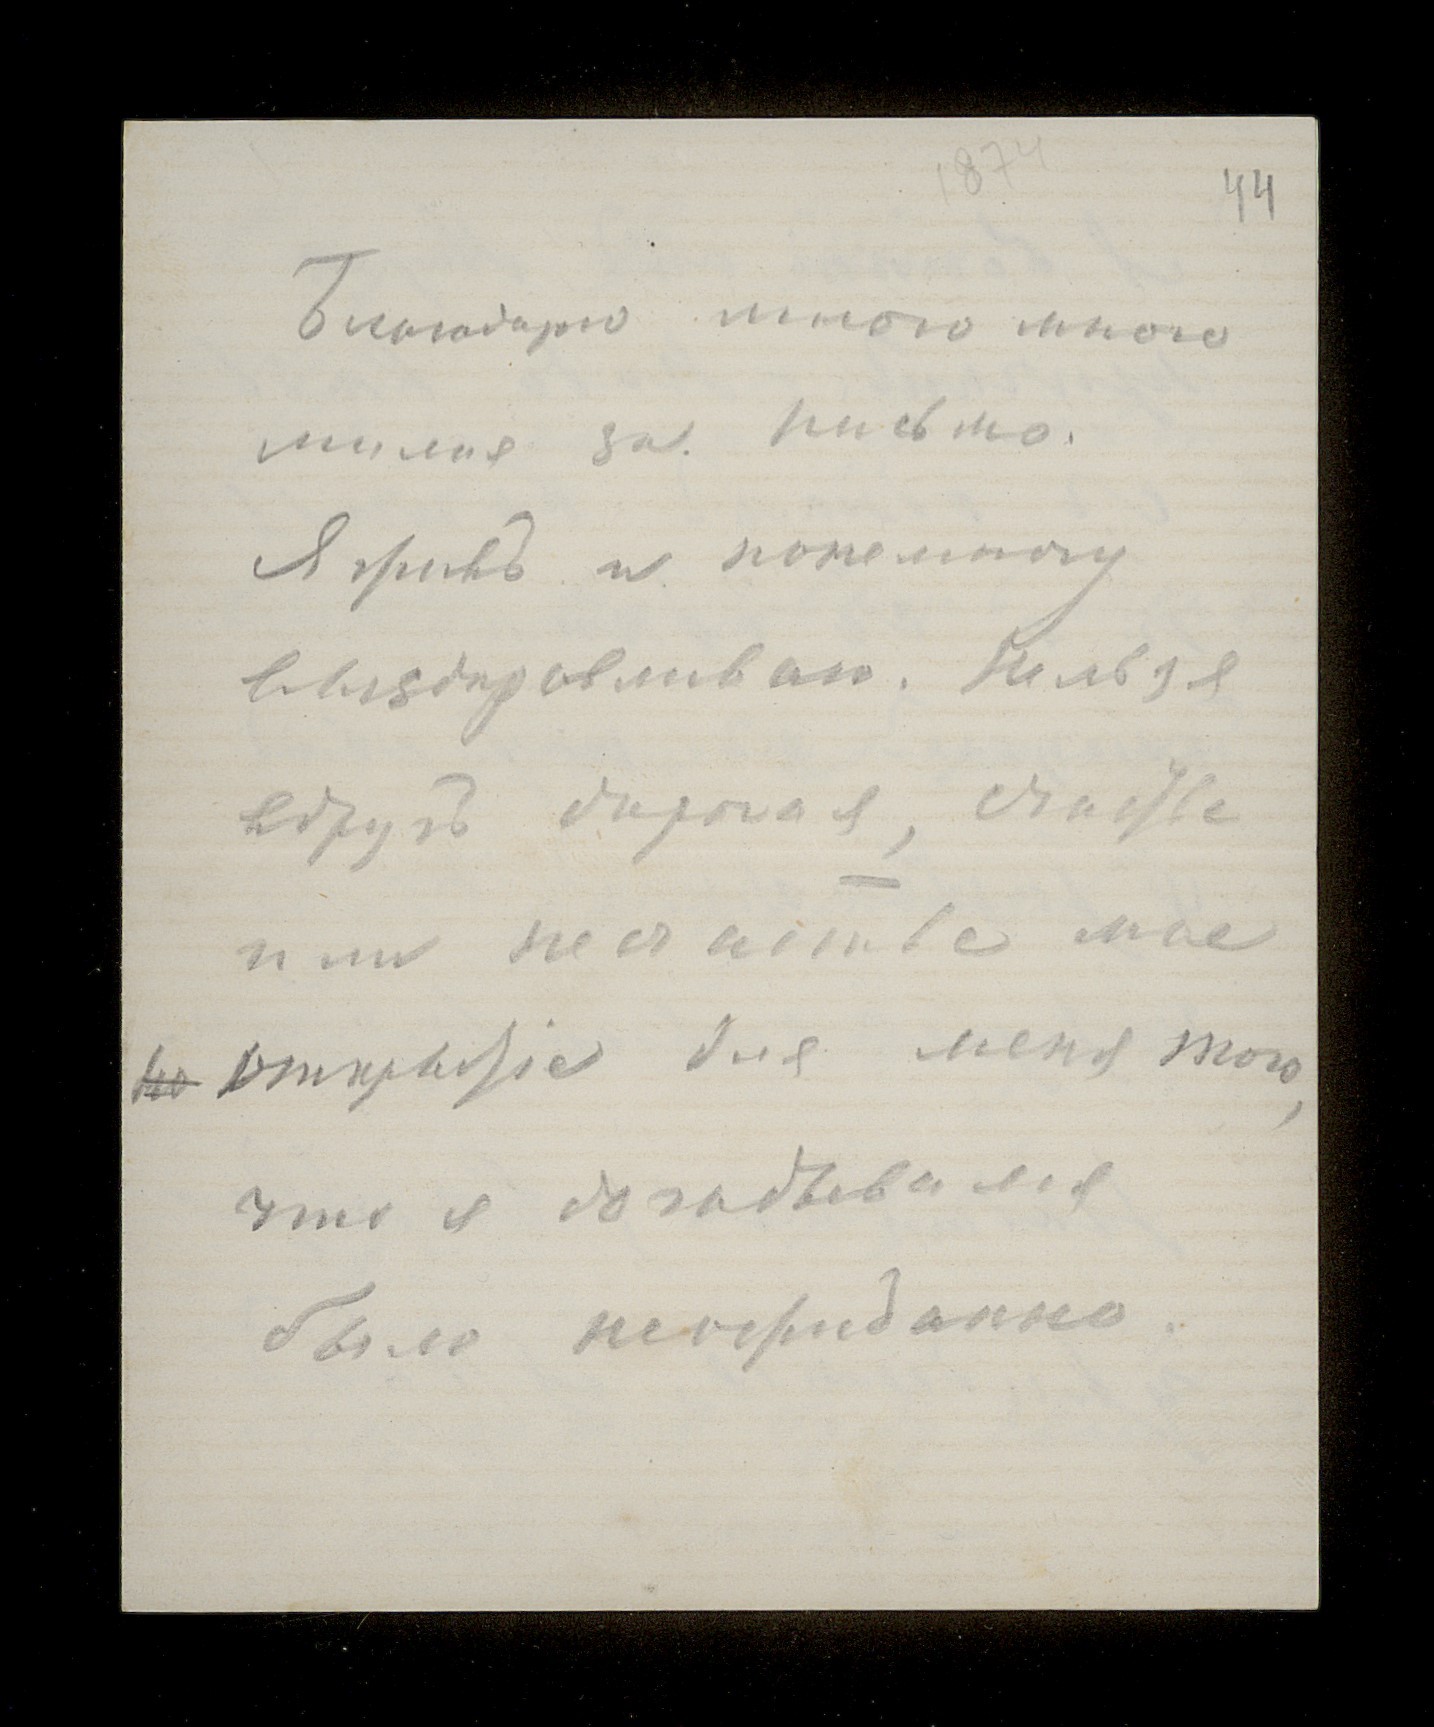 1874
44
Благодарю много много
милая за письмо.
Я живъ и понемногу
выздоровливаю. Нельзя
вдругъ дорогая, счастье
или несчастье мое
но открытіе для меня того,
что я догадывался
было неожиданно.